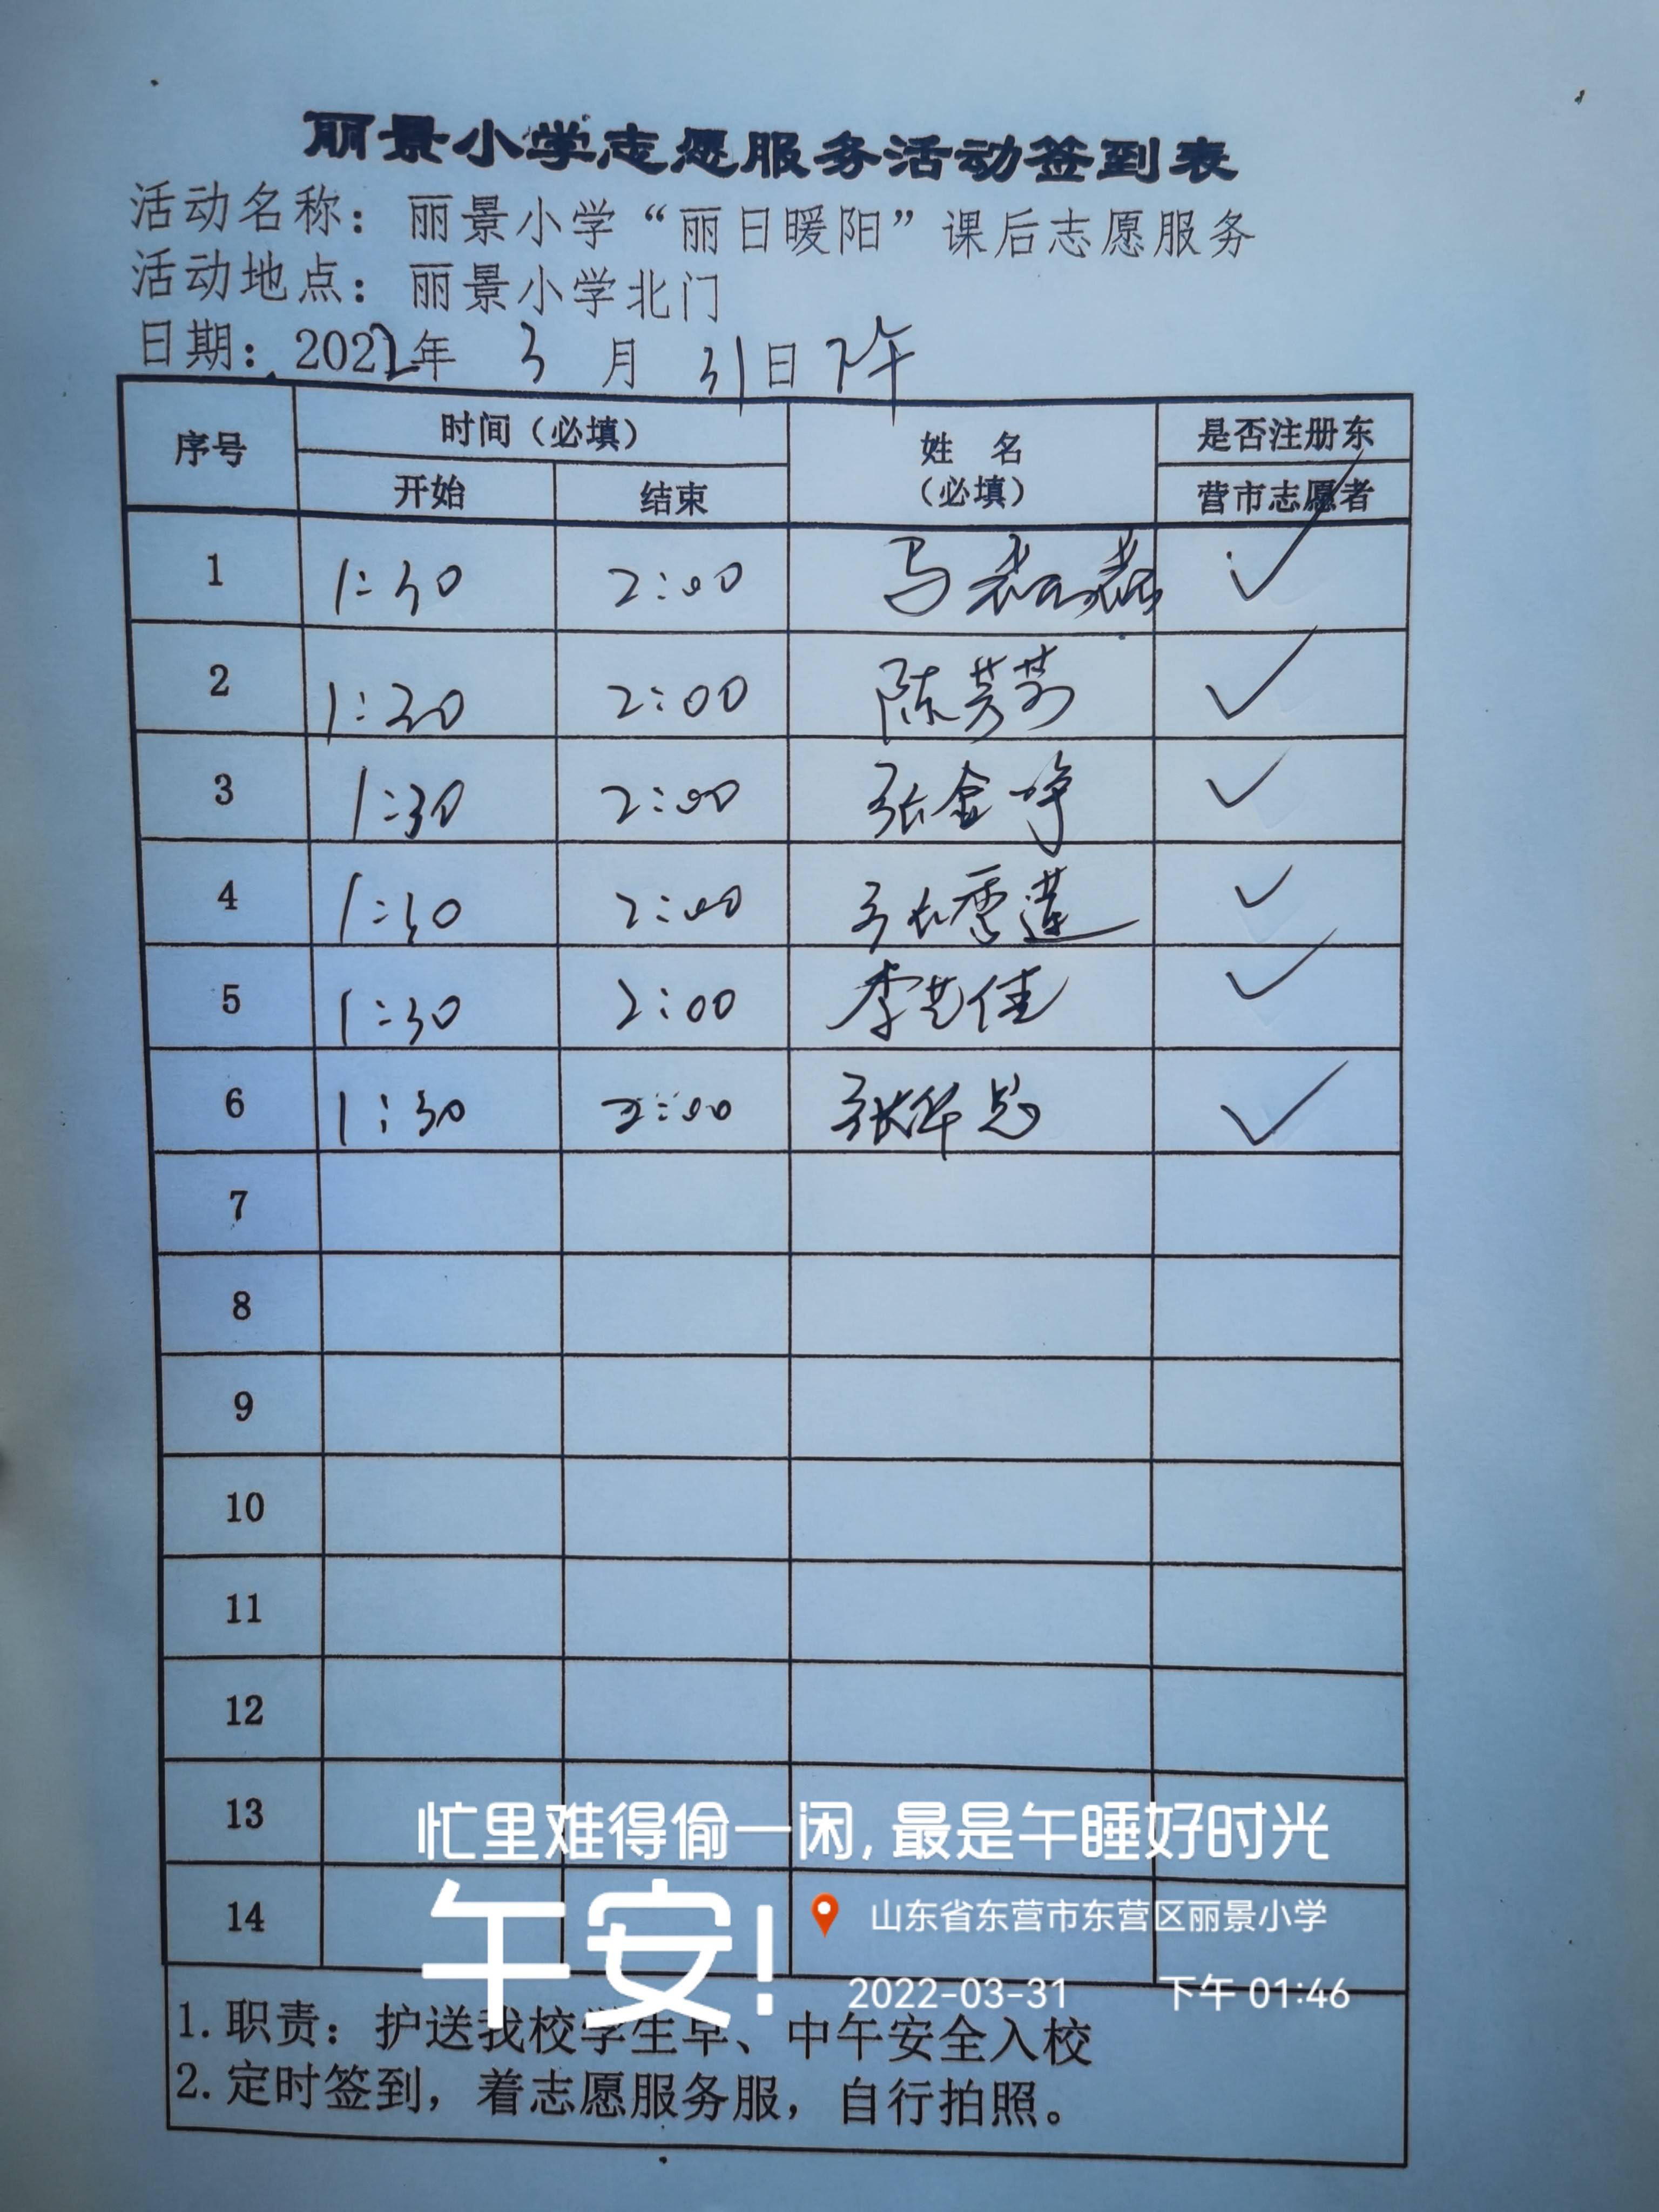 丽景小学志愿服务活动签到表
活动名称：丽景小学“丽日暖阳”课后志愿服务
活动地点：丽景小学北门
日期：2022年 3 月 31日 下午
序号 时间（必填） 姓 名 （必填） 是否注册东
开始 结束 营市志愿者
1 1:30 2:00 马 ✓
2 1:30 2:00 陈芳莉 ✓
3 1:30 2:00 张金峥 ✓
4 1:30 2:00 张秀莲 ✓
5 1:30 2:00 李艺佳 ✓
6 1:30 2:00 张华 ✓
7
8
9
10
11
12
13
忙里难得偷一闲，最是午睡好时光
14
午安！
山东省东营市东营区丽景小学
2022-03-31 下午 01:46
1.职责：护送我校学生早、中午安全入校
2.定时签到，着志愿服务服，自行拍照。